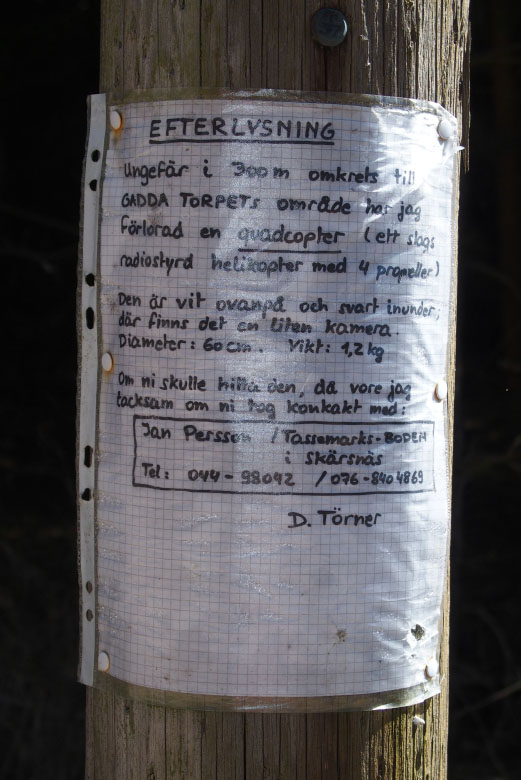 EFTERLYSNING
Ungefär i 300m omkrets till
GADDA TORPETs område har jag
förlorad en quadcopter (ett slags
radiostyrd helikopter med 4 propeller)
Den är vit ovanpå och svart inunder,
där finns det en liten kamera.
Diameter: 60cm. Vikt: 1,2kg
Om ni skulle hitta den, då vore jag
tacksam om ni tog kontakt med:
Jan Persson / Tassemarks-BODEN
i Skärsnäs
Tel: 044-98042 / 076-8404869
D. Törner